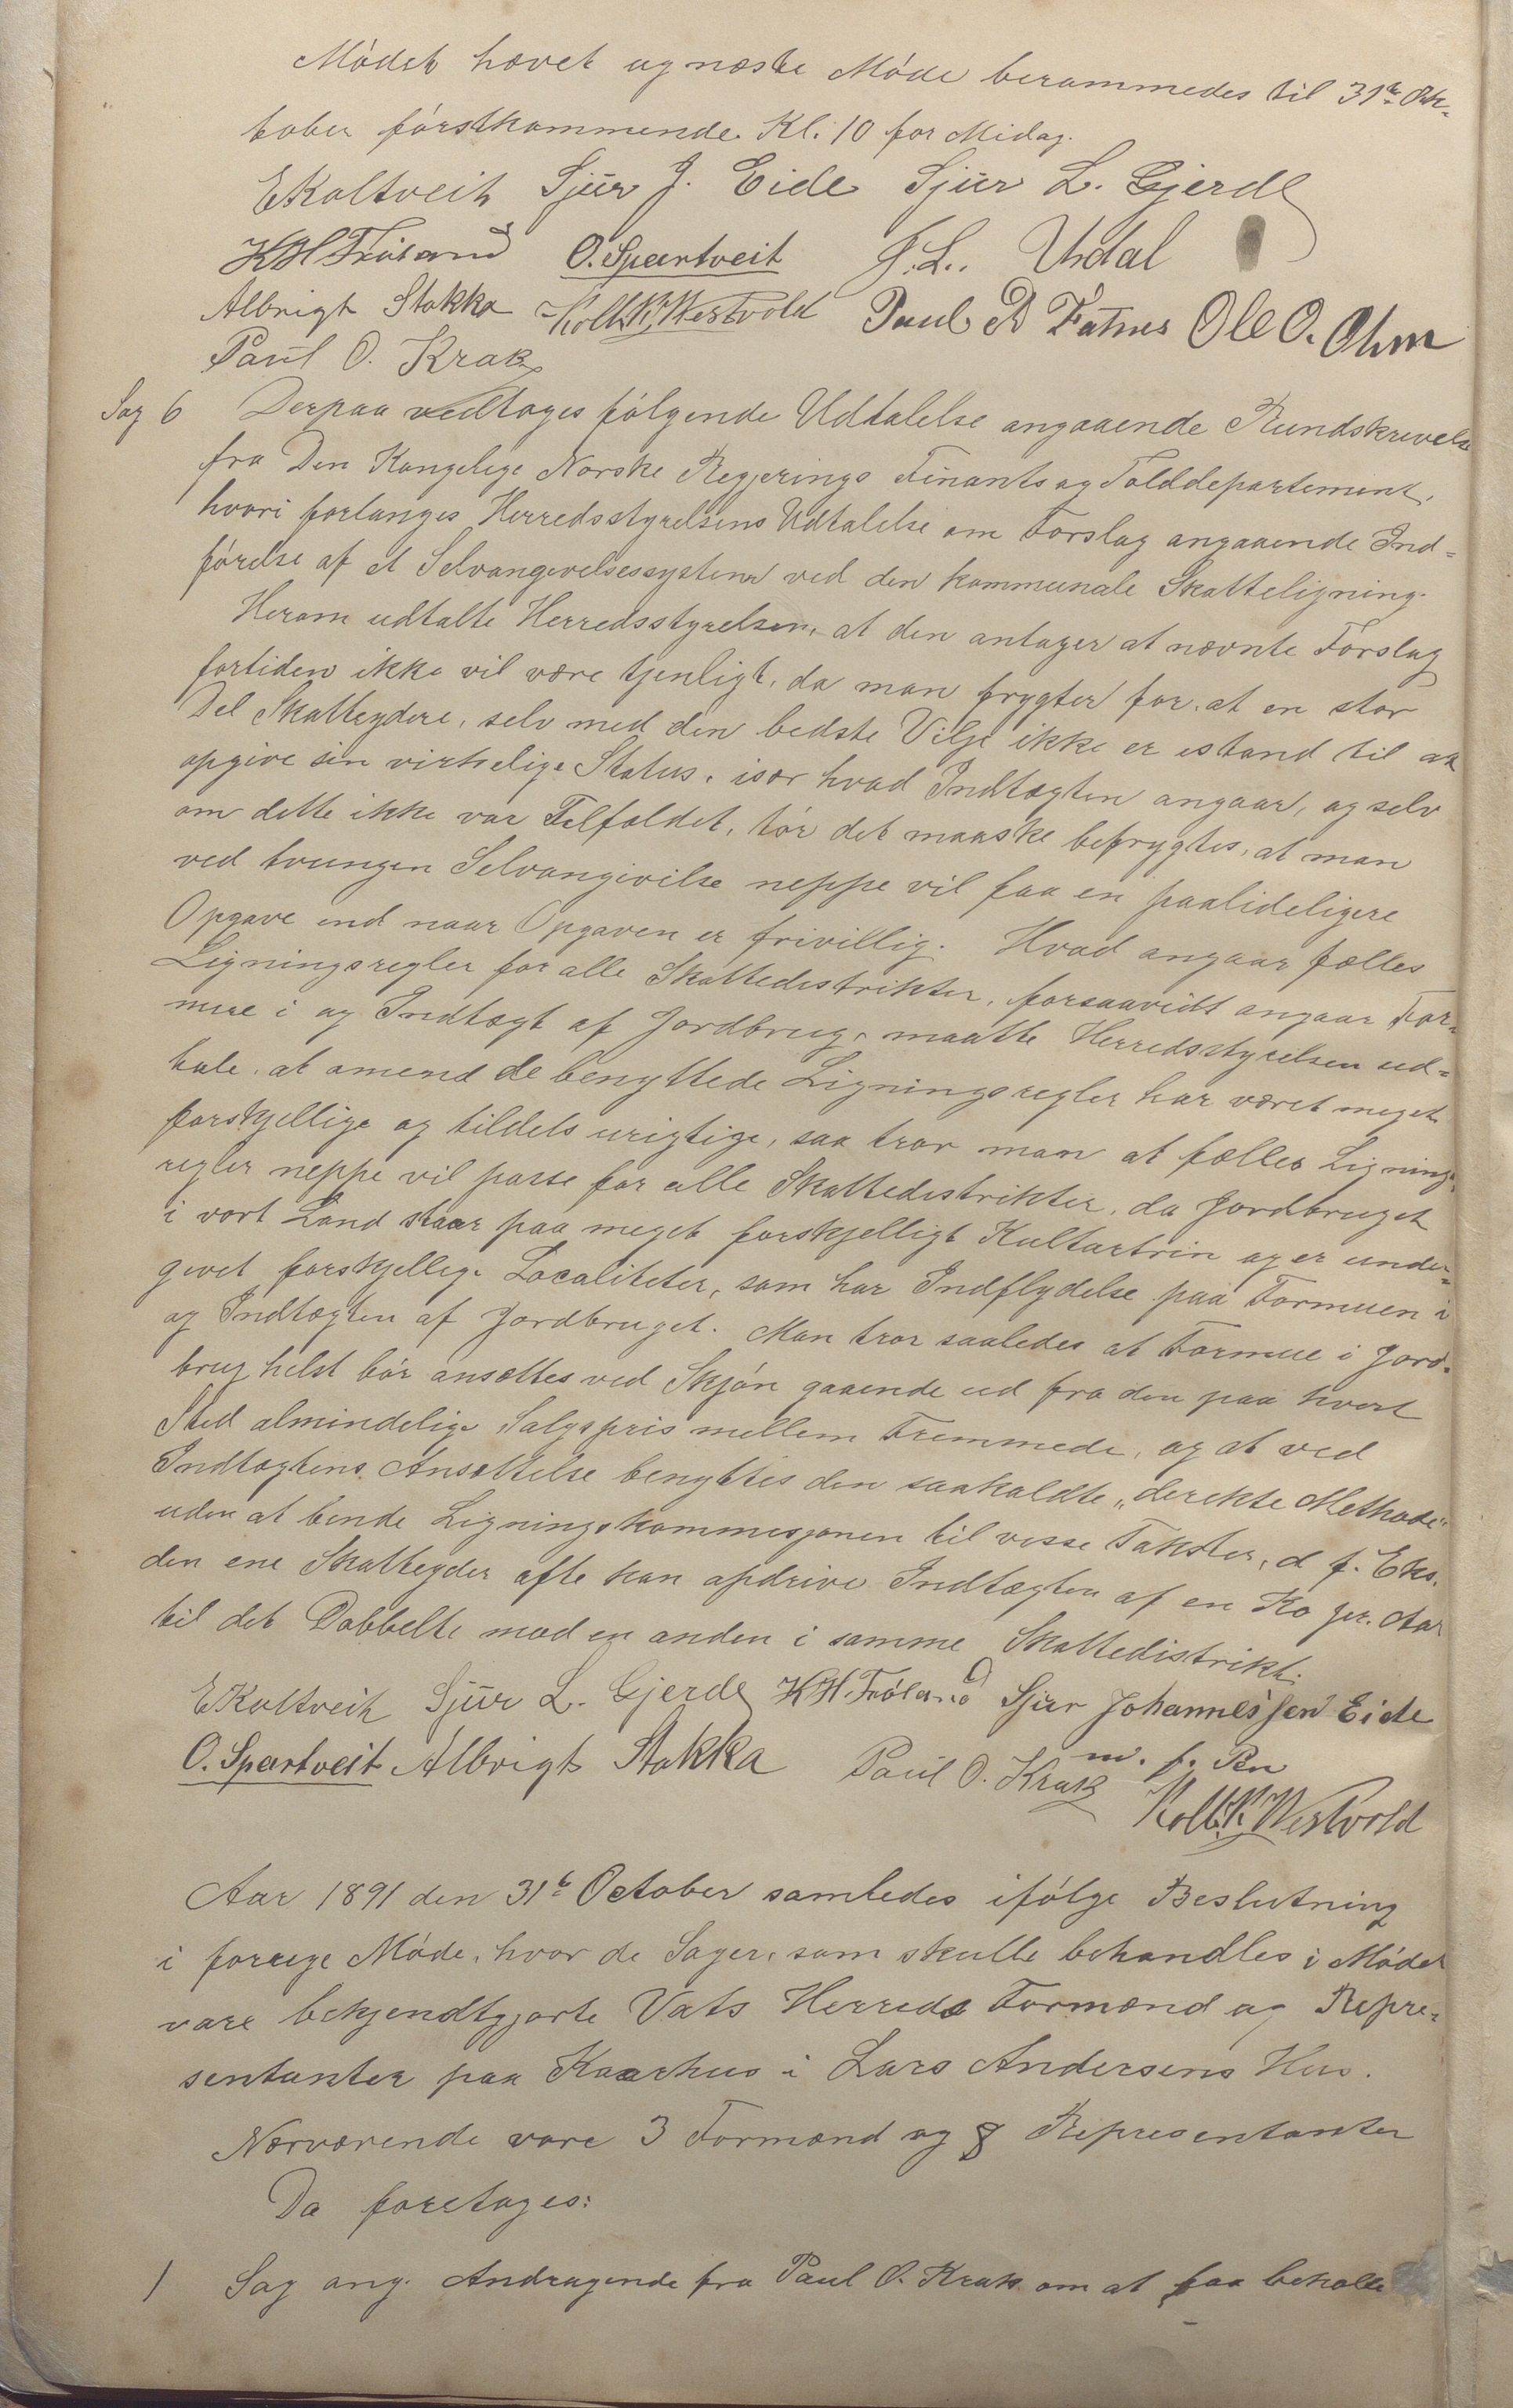 Mødet hævet og næste Møde berammedes til 31te Ok-
tober førstkommende Kl. 10 for Midag.
EKoltveit Sjur J. Eide Sjur L. Gjerde
KHFrøland O. Spartveit J. L. Urdal
Albrigt Stakka Koll. K. Westvold Paul A Fatnes Ole O. Ohm
Paul O. Krak
Sag 6 Derpaa vedtoges følgende Udtalelse angaaende Rundskrivelse
fra Den Kongelige Norske Regjerings Finants og Tolddepartement,
hvori forlanges Herredsstyrelsens Udtalelse om Forslag angaaende Ind-
førelse af et Selvangivelsessystem ved den kommunale Skatteligning.
Herom udtalte Herredsstyrelsen, at den antager at nævnte Forslag
fortiden ikke vil være tjenligt, da man frygter for, at en stor
Del Skatteydere, selv med den bedste Vilje ikke er istand til at
opgive sin virkelige Status, især hvad Indtægten angaar, og selv
om dette ikke var Tilfældet, tør det maaske befrygtes, at man
ved tvungen Selvangivelse neppe vil faa en paalideligere
Opgave end naar Opgaven er frivillig. Hvad angaar fælles
Ligningsregler for alle Skattedistrikter, forsaavidt angaar For-
mue i og Indtægt af Jordbrug, maatte Herredsstyrelsen ud-
tale, at omend de benyttede Ligningsregler har været meget
forskjellige og tildels urigtige, saa tror man at fælles Lignings-
regler neppe vil passe for alle Skattedistrikter, da Jordbruget
i vort Land staar paa meget forskjelligt Kulturtrin og er under-
givet forskjellige Localiteter, som har Indflydelse paa Formuen i
og Indtægten af Jordbruget. Man tror saaledes at Formue i Jord-
brug helst bør ansættes ved Skjøn gaaende ud fra den paa hvert
Sted almindelige Salgspris mellem Fremmede, og at ved
Indtægtens Ansættelse benyttes den saakaldte „derekte Methode"
uden at bende Ligningskommisjonen til visse Takster, d f. Eks.
den ene Skatteyder ofte kan opdrive Indtægten af en Ko pr. Aar
til det Dobbelte mod en anden i samme Skattedistrikt.
EKoltveit Sjur L. Gjerde KH. Frøland Sjur Johannesen Eide
O. Spartveit Albrigt Stakka Paul O. Krak m. f. Pen
Koll. K. Westvold
Aar 1891 den 31te October samledes ifølge Beslutning
i forrige Møde, hvor de Sager, som skulle behandles i Mødet
vare bekjendtgjorte Vats Herreds Formænd og Repre-
sentanter paa Kaarhus i Lars Andersens Hus.
Nærværende vare 3 Formænd og 8 Representanter
Da foretoges:
1 Sag ang. Andragende fra Paul O. Krak om at faa beholde